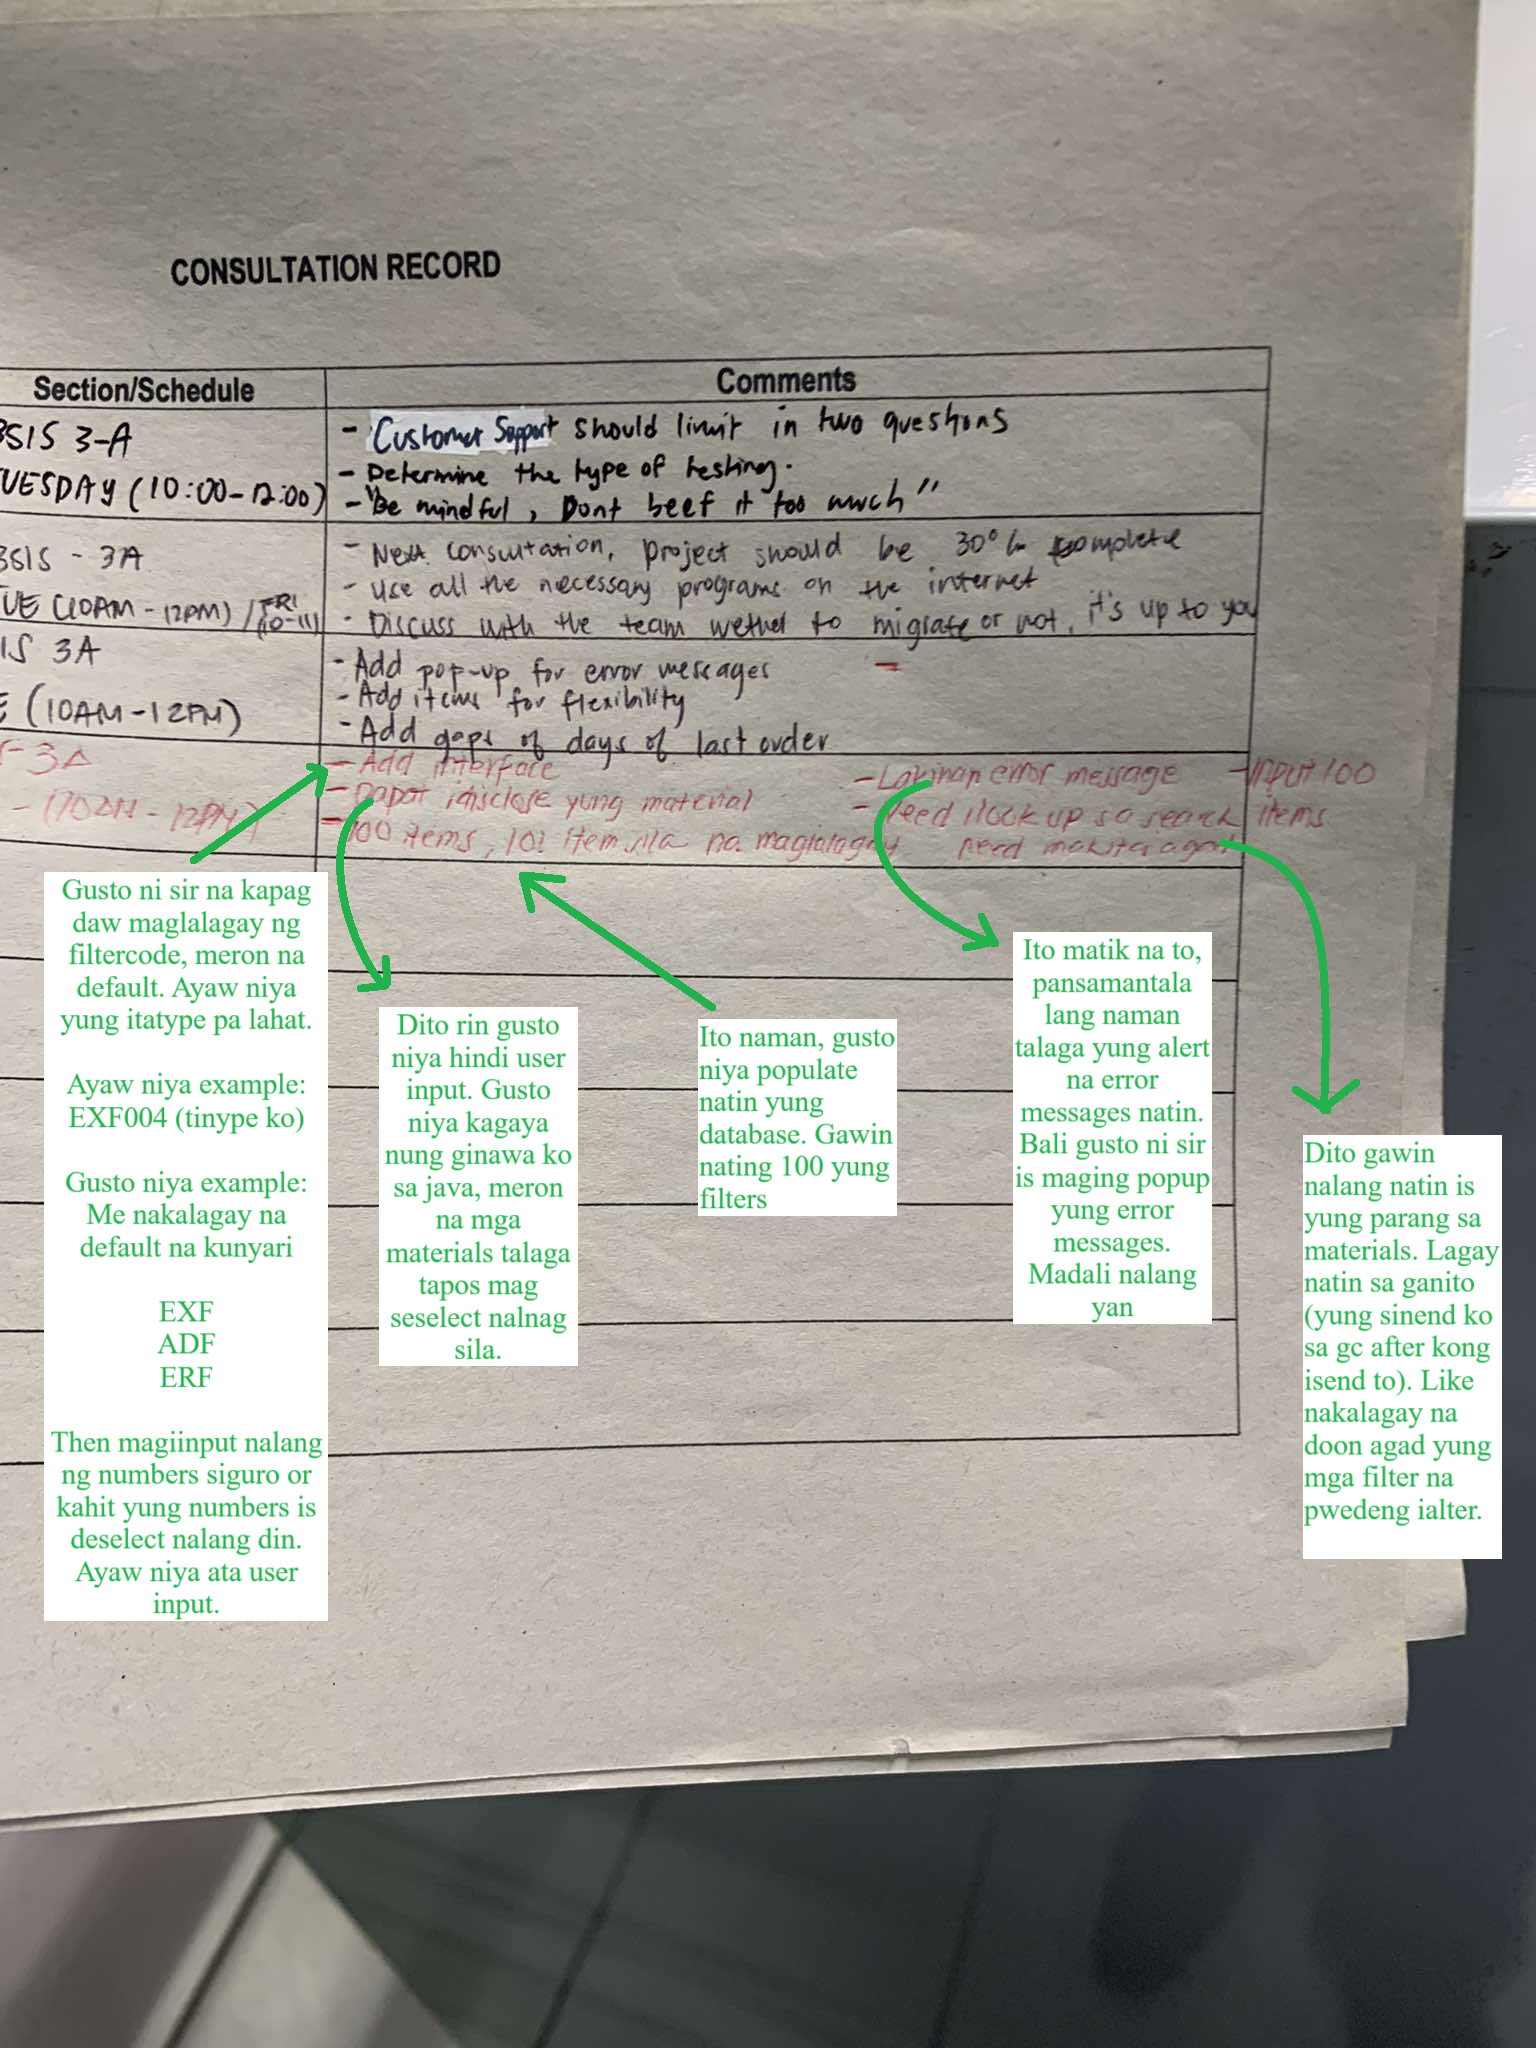 CONSULTATION RECORD
Section/Schedule
Comments
BSIS 3-A
TUESDAY (10:00-12:00)
- Customer Support should limit in two questions
- Determine the type of testing.
- "Be mindful, Dont beef it too much"
BSIS - 3A
TUE (10AM - 12PM) / FRI (10-11)
- Next consultation, project should be 30% complete
- Use all the necessary programs on the internet
- Discuss with the team wether to migrate or not, it's up to you
IS 3A
E (10AM-12PM)
- Add pop-up for error messages
-
- Add items for flexibility
- Add gaps of days of last order
- 3A
- (10AM - 12PM)
- Add interface
- Dapat idisclose yung material
- 100 items, 101 item sila na maglalagay
- Lakihan error message
- Need ilook up sa search
need makita agad
- Input 100
items
Gusto ni sir na kapag
daw maglalagay ng
filtercode, meron na
default. Ayaw niya
yung itatype pa lahat.
Ayaw niya example:
EXF004 (tinype ko)
Gusto niya example:
Me nakalagay na
default na kunyari
EXF
ADF
ERF
Then magiinput nalang
ng numbers siguro or
kahit yung numbers is
deselect nalang din.
Ayaw niya ata user
input.
Dito rin gusto
niya hindi user
input. Gusto
niya kagaya
nung ginawa ko
sa java, meron
na mga
materials talaga
tapos mag
seselect nalnag
sila.
Ito naman, gusto
niya populate
natin yung
database. Gawin
nating 100 yung
filters
Ito matik na to,
pansamantala
lang naman
talaga yung alert
na error
messages natin.
Bali gusto ni sir
is maging popup
yung error
messages.
Madali nalang
yan
Dito gawin
nalang natin is
yung parang sa
materials. Lagay
natin sa ganito
(yung sinend ko
sa gc after kong
isend to). Like
nakalagay na
doon agad yung
mga filter na
pwedeng ialter.